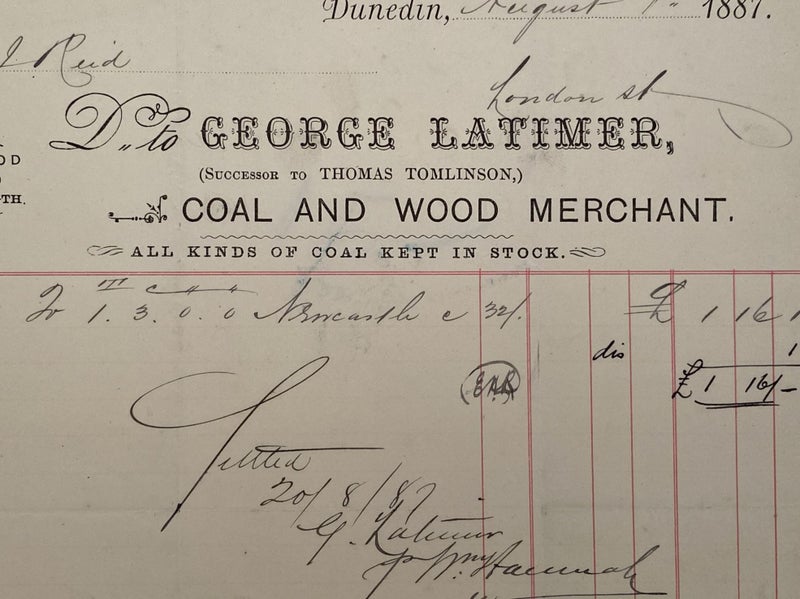 Dunedin, August 1887.
J Reid
London st
Dr. to GEORGE LATIMER,
(SUCCESSOR TO THOMAS TOMLINSON,)
COAL AND WOOD MERCHANT.
ALL KINDS OF COAL KEPT IN STOCK.
To 1. 3. 0. 0 Newcastle c 32/. £ 1 16 1
dis 1
£ 1 16/-
Settled
20/8/87
G. Latimer
p Wm Hannah